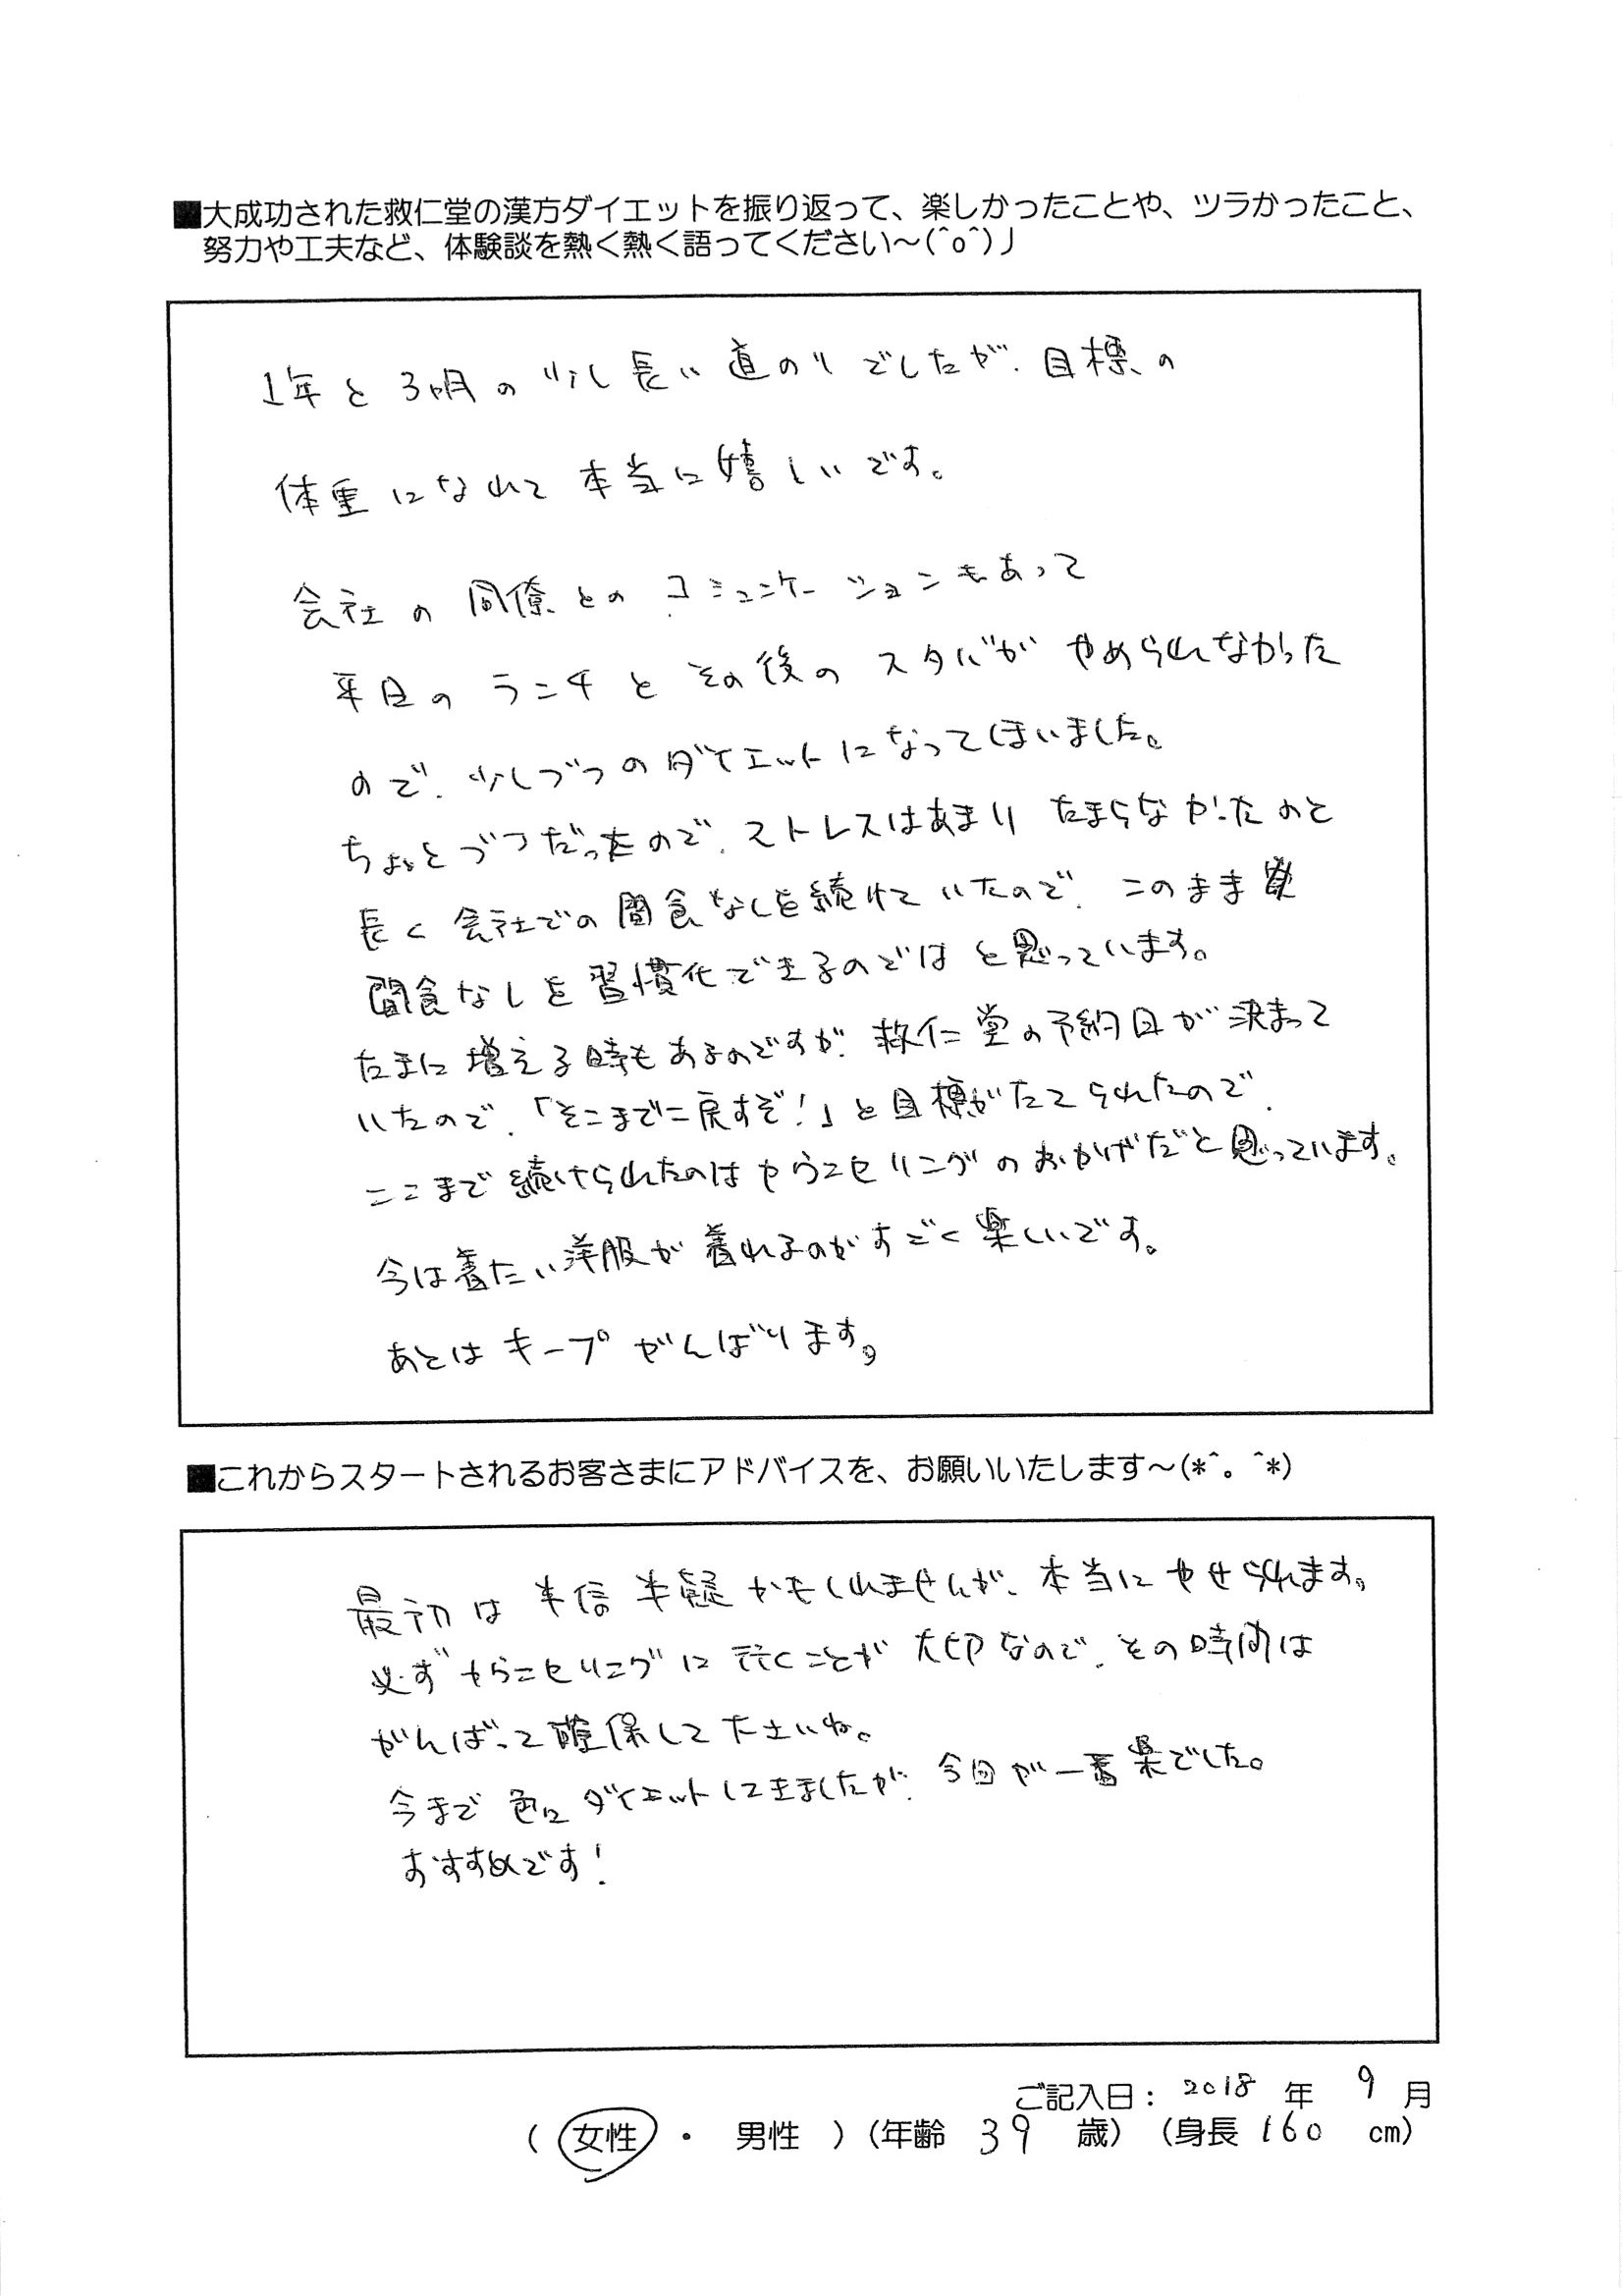 ■大成功された救仁堂の漢方ダイエットを振り返って、楽しかったことや、ツラかったこと、
努力や工夫など、体験談を熱く熱く語ってください～(^o^)丿
1年と3ヶ月の少し長い道のりでしたが、目標の
体重になれて本当に嬉しいです。
会社の同僚とのコミュニケーションもあって
平日のランチとその後のスタバがやめられなかった
ので、少しづつのダイエットになってしまいました。
ちょっとづつだったので、ストレスはあまりたまらなかったのと
長く会社での間食なしを続けていたので、このまま
間食なしを習慣化できるのではと思っています。
たまに増える時もあるのですが、救仁堂の予約日が決まって
いたので、「そこまでに戻すぞ！」と目標がたてられたので、
ここまで続けられたのはカウンセリングのおかげだと思っています。
今は着たい洋服が着れるのがすごく楽しいです。
あとはキープがんばります。
■これからスタートされるお客さまにアドバイスを、お願いいたします～(*^。^*)
最初は半信半疑かもしれませんが、本当にやせられます。
必ずカウンセリングに行くことが大切なので、その時間は
がんばって確保して下さいね。
今まで色々ダイエットしてきましたが、今回が一番楽でした。
おすすめです！
ご記入日：2018年 9月
（ 女性 ・ 男性 ）（年齢 39 歳）（身長 160 cm）